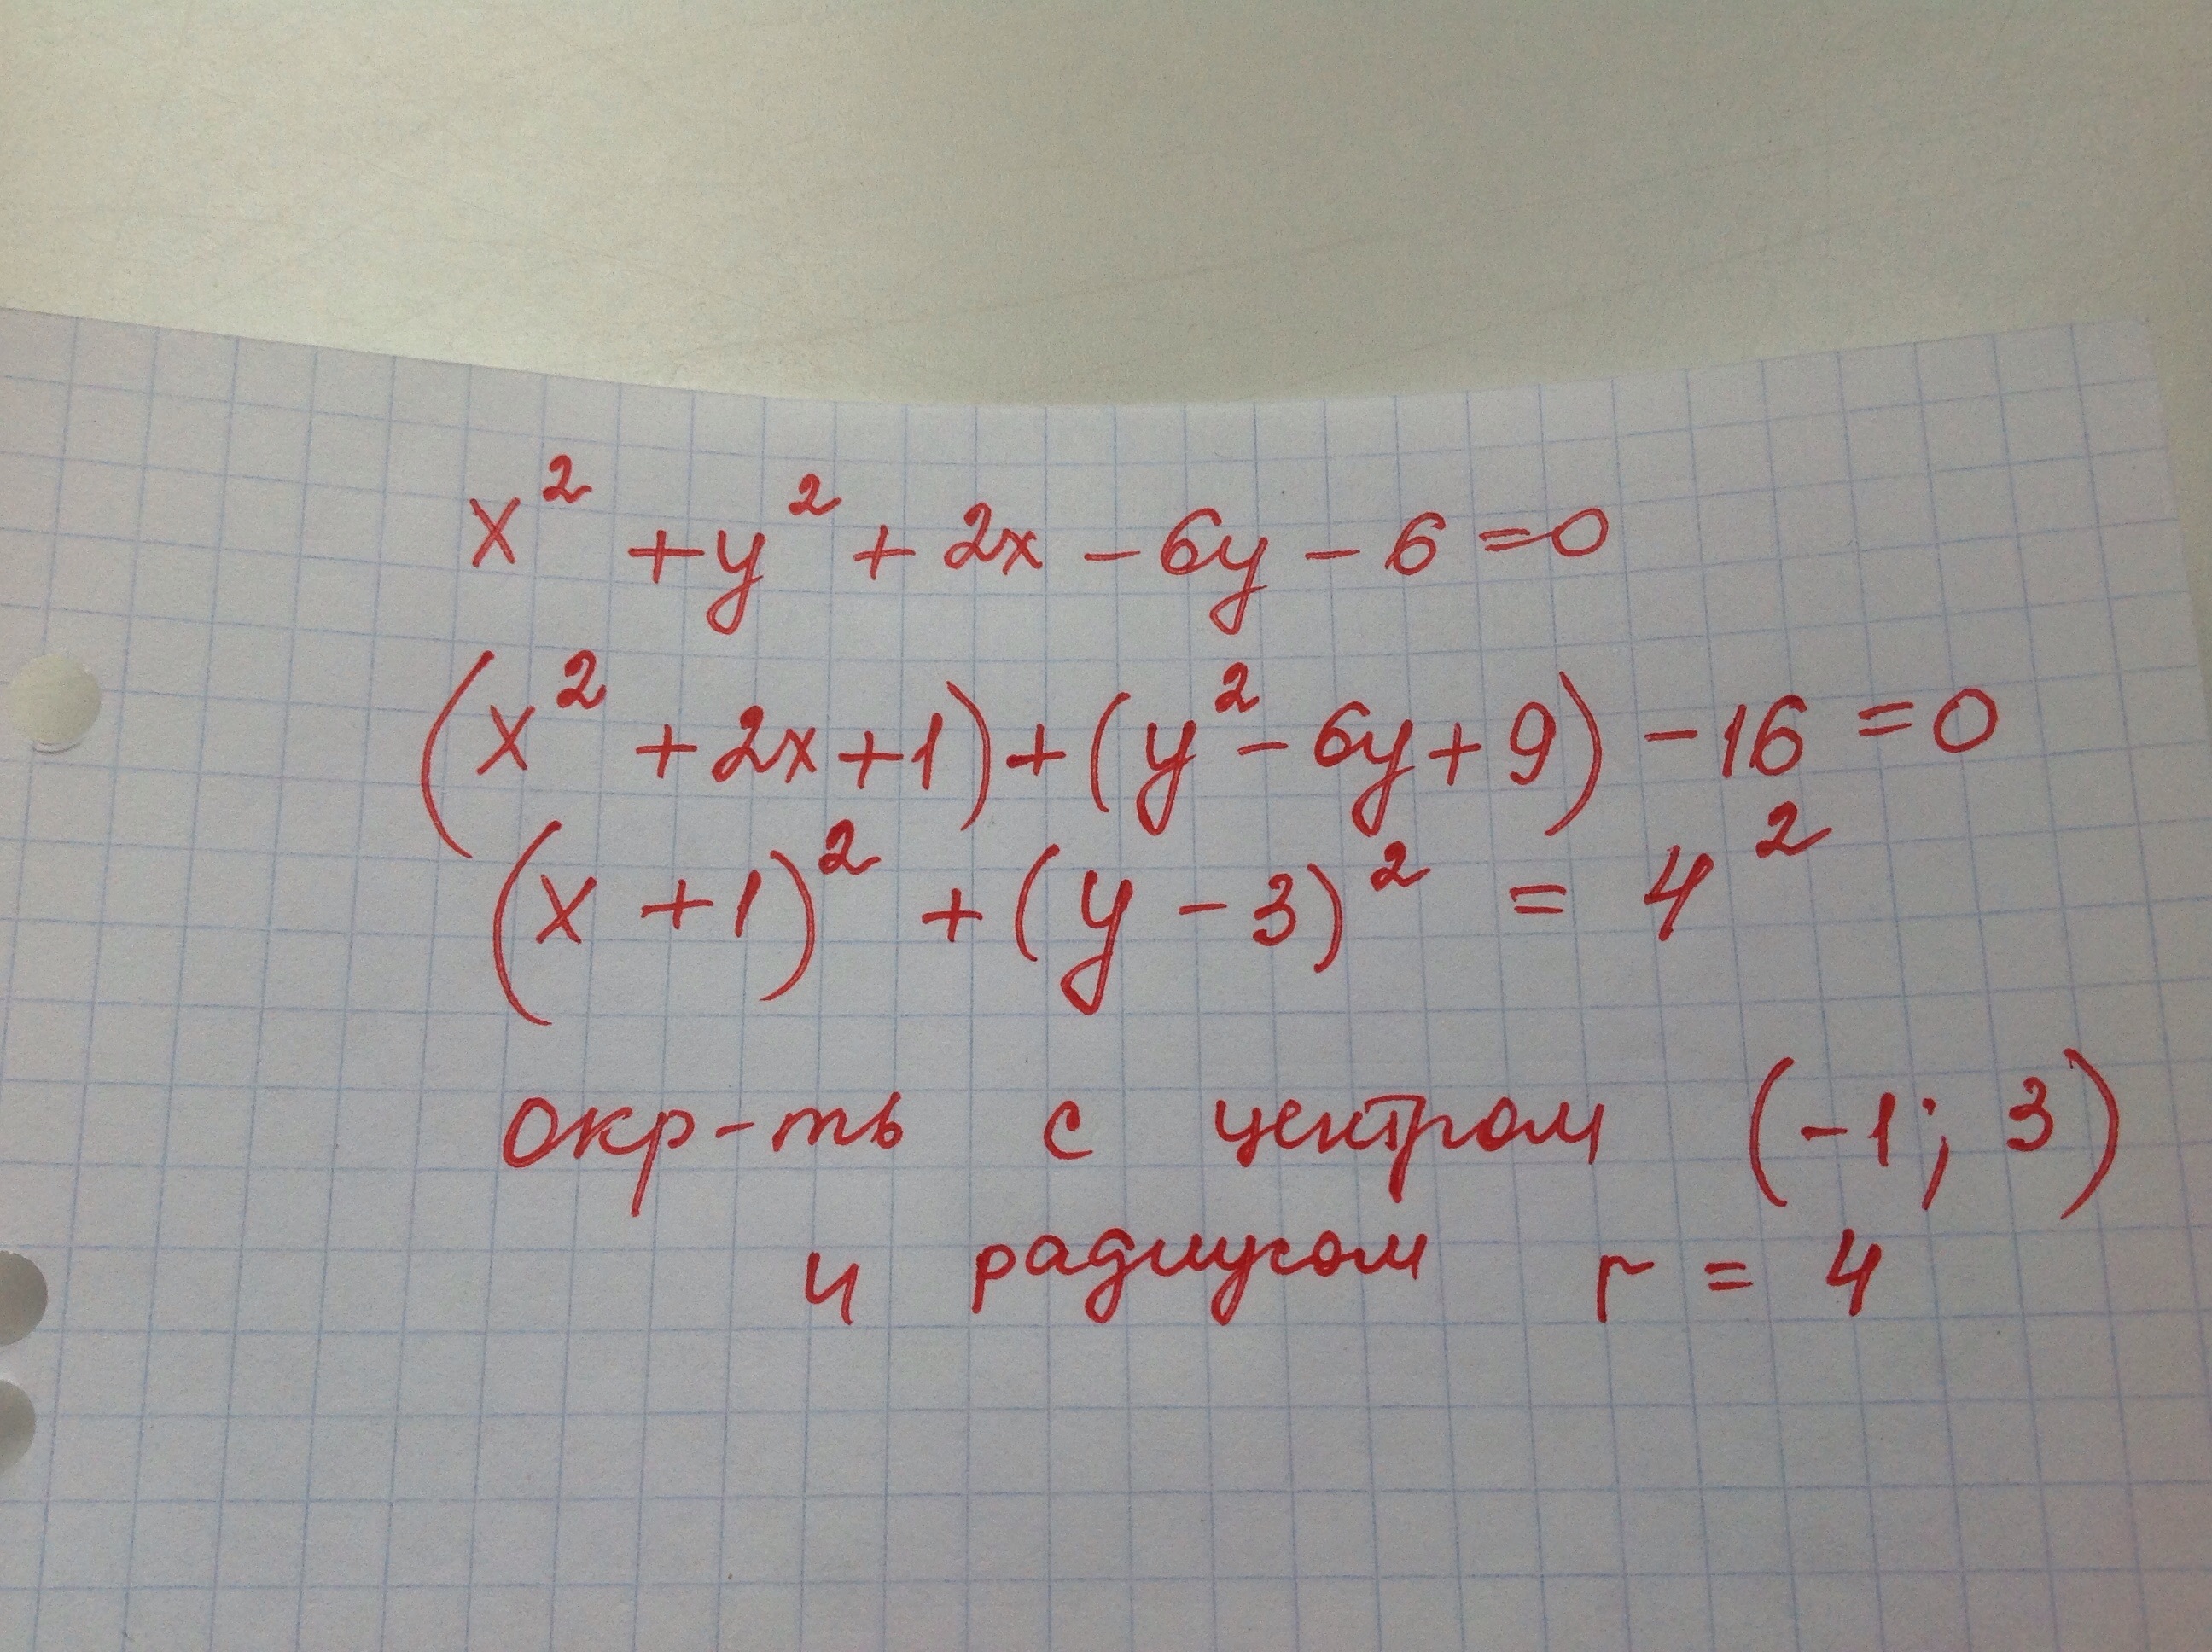 x² + y² + 2x - 6y - 6 = 0
(x² + 2x + 1) + (y² - 6y + 9) - 16 = 0
(x + 1)² + (y - 3)² = 4²
окр-ть с центром (-1; 3)
и радиусом r = 4